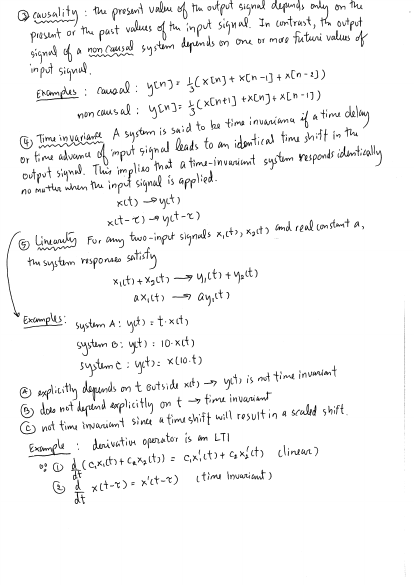 ③ causality : the present value of the output signal depends only on the
present or the past values of the input signal. In contrast, the output
signal of a non causal system depends on one or more future values of
input signal.
Examples : causal : y[n] = 1/3 (x[n] + x[n-1] + x[n-2])
non causal : y[n] = 1/3 (x[n+1] + x[n] + x[n-1])
④ Time invariance A system is said to be time invariant if a time delay
or time advance of input signal leads to an identical time shift in the
output signal. This implies that a time-invariant system responds identically
no matter when the input signal is applied.
x(t) → y(t)
x(t-τ) → y(t-τ)
⑤ Linearity For any two-input signals x₁(t), x₂(t) and real constant a,
the system responses satisfy
x₁(t) + x₂(t) → y₁(t) + y₂(t)
a x₁(t) → a y₁(t)
Examples: system A : y(t) = t·x(t)
system B : y(t) = 10·x(t)
system C : y(t) = x(10·t)
Ⓐ explicitly depends on t outside x(t) → y(t) is not time invariant
Ⓑ does not depend explicitly on t → time invariant
Ⓒ not time invariant since a time shift will result in a scaled shift.
Example : derivative operator is an LTI
∵ ① d/dt (c₁x₁(t) + c₂x₂(t)) = c₁x₁'(t) + c₂x₂'(t) (linear)
② d/dt x(t-τ) = x'(t-τ) (time invariant)